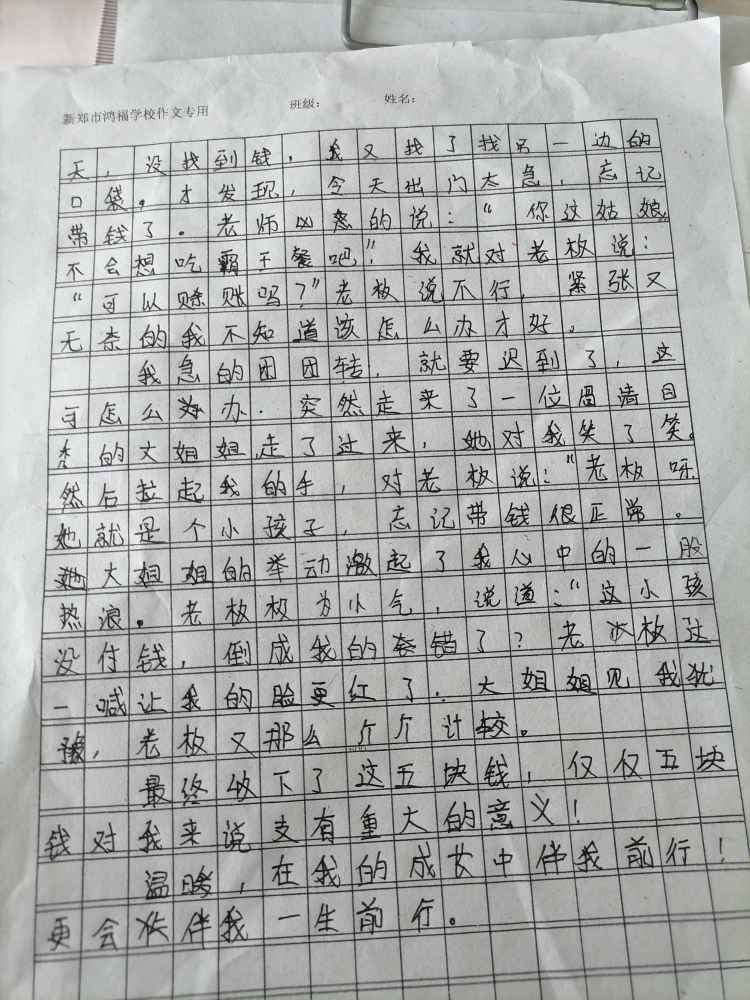 新郑市鸿福学校作文专用 班级： 姓名：
天，没找到钱，我又找了找另一边的
口袋。才发现，今天出门太急，忘记
带钱了。老师凶怒的说：“你这姑娘
不会想吃霸王餐吧”？我就对老板说：
“可以赊账吗？”老板说不行，紧张又
无奈的我不知道该怎么办才好。
我急的团团转，就要迟到了，这
可怎么办．突然走来了一位眉清目
秀的大姐姐走了过来，她对我笑了笑。
然后拉起我的手，对老板说：“老板呀
她就是个小孩子，忘记带钱很正常。
她大姐姐的举动激起了我心中的一股
热浪。老板极为小气，说道：“这小孩
没付钱，倒成我的错了？老板这
一喊让我的脸更红了．大姐姐见我犹
豫，老板又那么斤斤计较。
最终付下了这五块钱，仅仅五块
钱对我来说支有重大的意义！
温暖，在我的成长中伴我前行！
更会伴我一生前行。